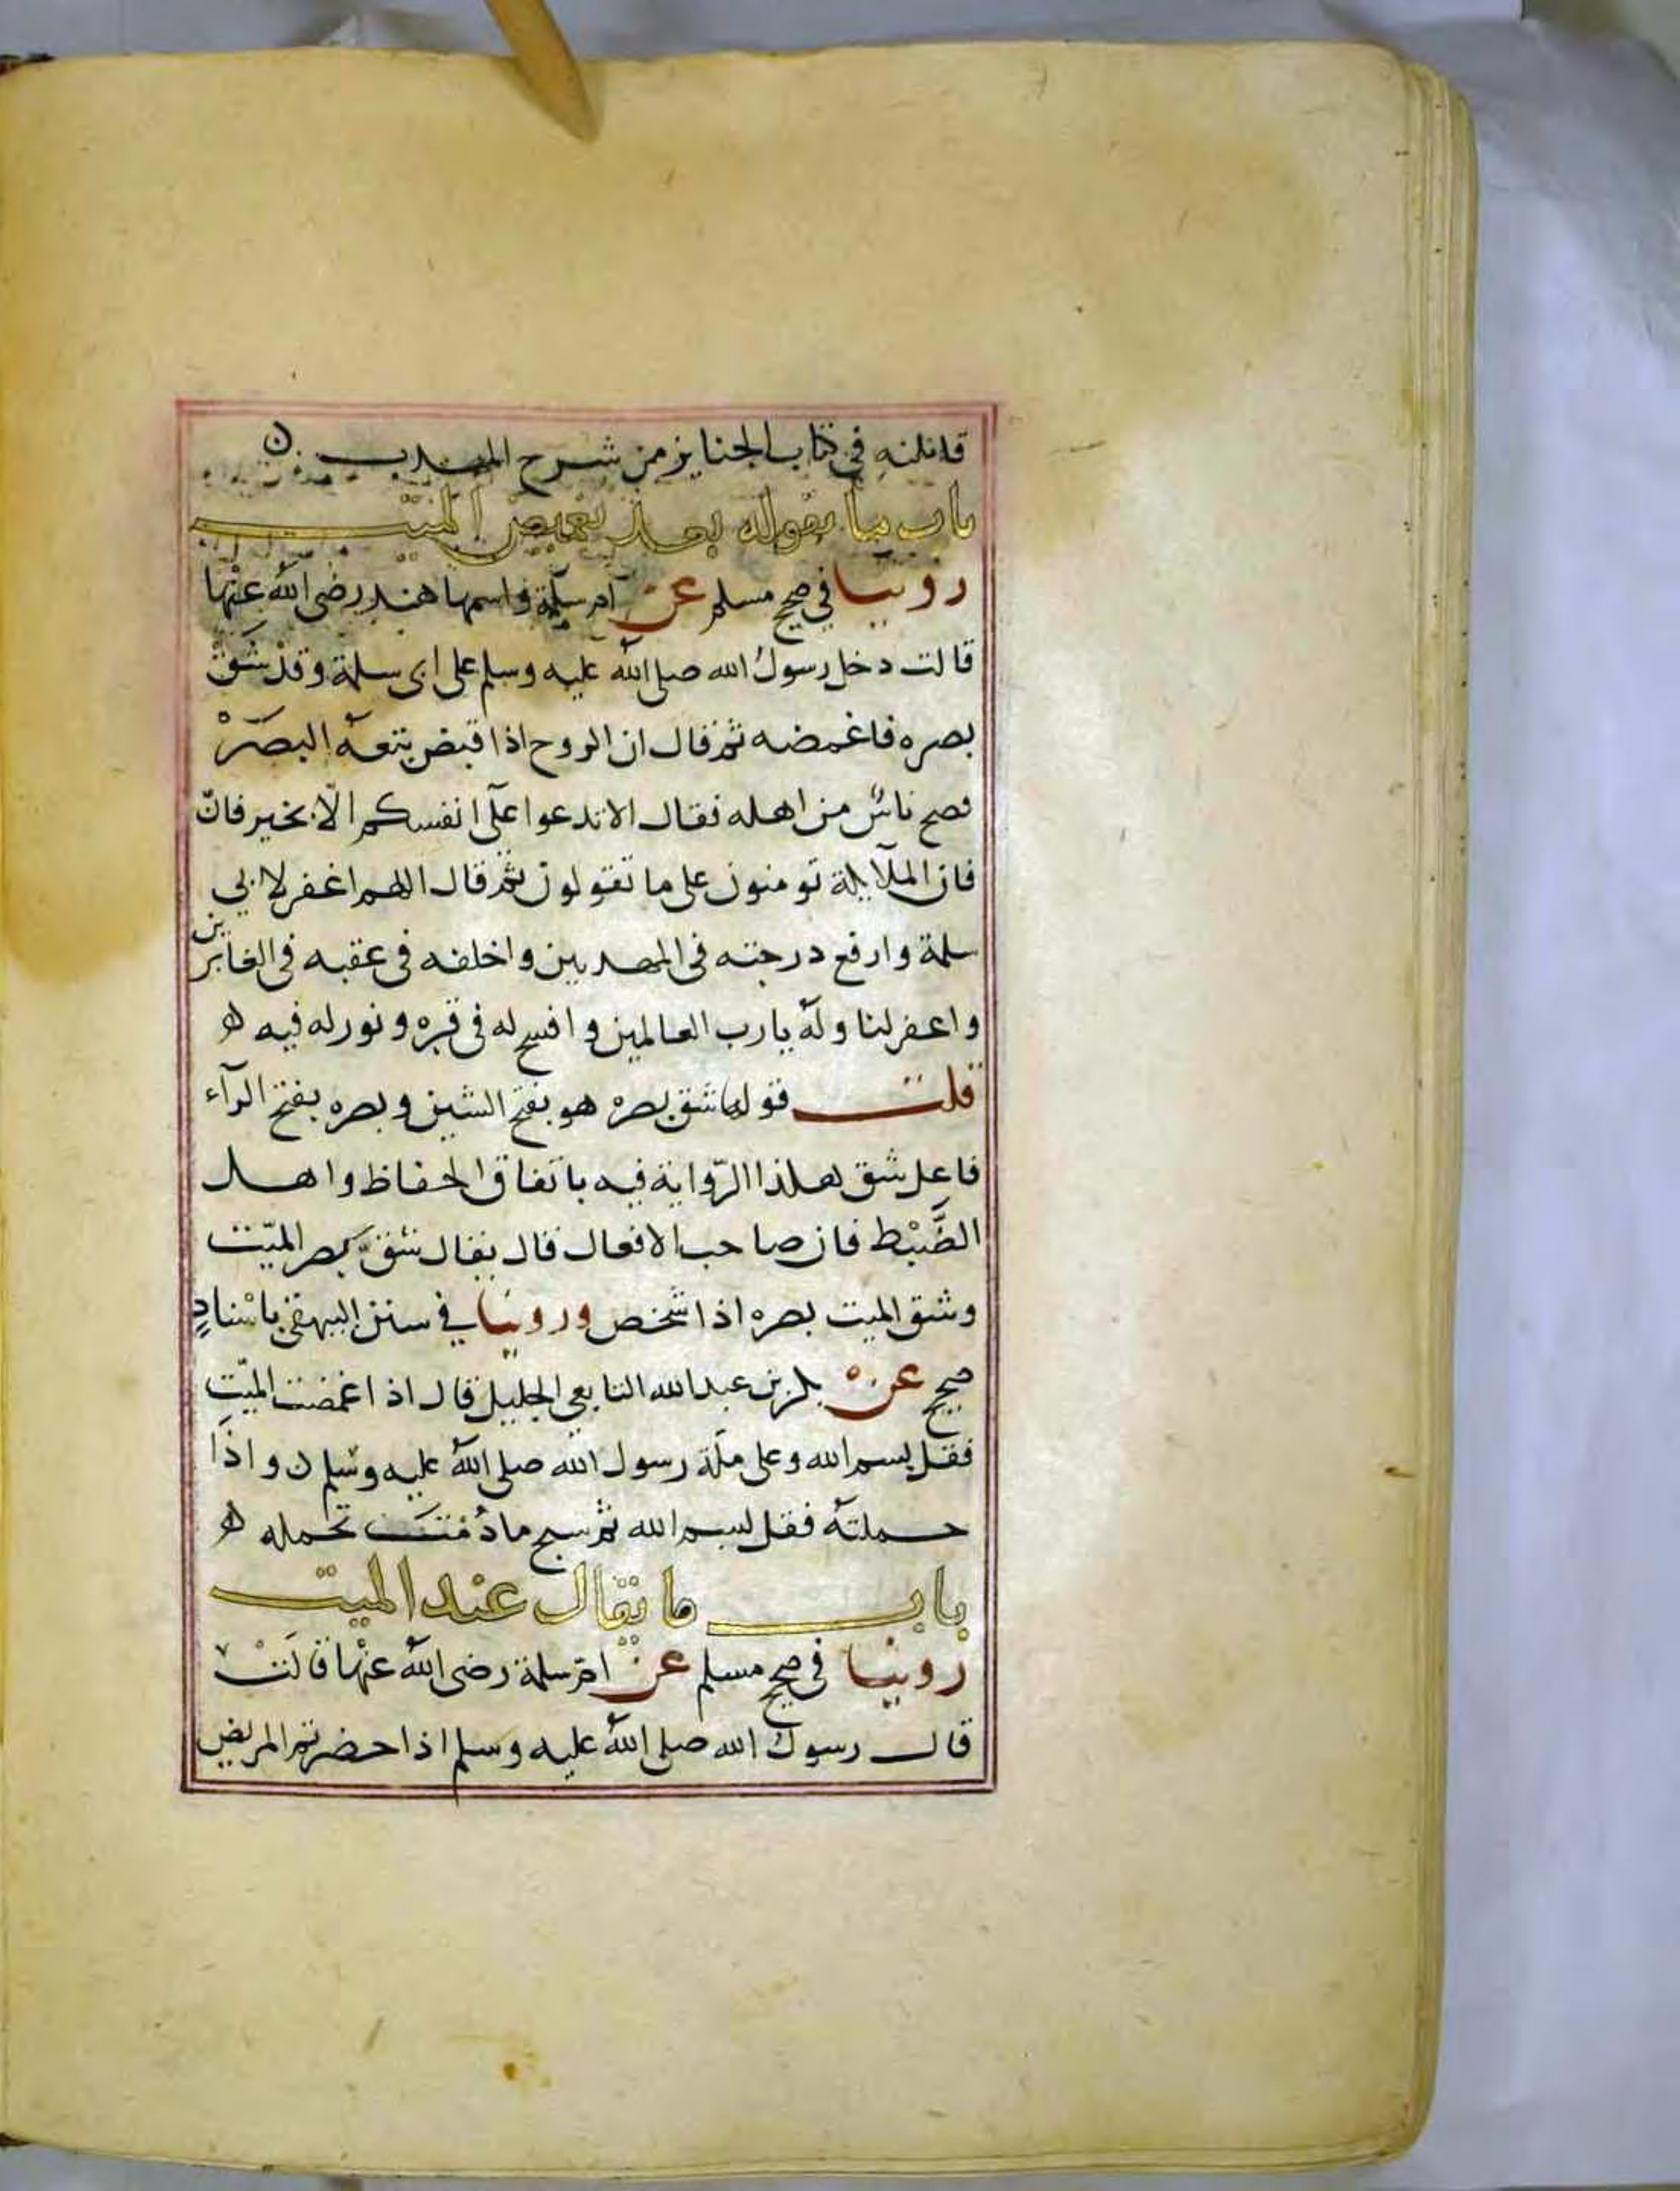 قد نقلته في كتاب الجنايز من شرح المهذب ن
باب ما يقوله بعد تغميض الميت
روينا في صحيح مسلم عن ام سلمة واسمها هند رضي الله عنها
قالت دخل رسول الله صلى الله عليه وسلم على ابى سلمة وقد شق
بصره فاغمضه ثم قال ان الروح اذا قبض تتبعه البصر
فصح ناس من اهله فقال لا تدعوا على انفسكم الا بخير فان
فان الملايكة تومنون على ما تقولون ثم قال اللهم اغفر لابي
سلمة وارفع درجته في المهديين واخلفه في عقبه في الغابرين
واغفر لنا وله يا رب العالمين وافسح له في قبره ونور له فيه ه
قلت قولها شق بصره هو بفتح الشين وبصره بفتح الرآء
فاعل شق هذا الرواية فيه باتفاق الحفاظ واهل
الضبط فان صاحب الافعال قال يقال شق بصر الميت
وشق الميت بصره اذا شخص وروينا في سنن البيهقي باسناد
صحيح عن بكر بن عبد الله التابعي الجليل قال اذا اغمضت الميت
فقل بسم الله وعلى ملة رسول الله صلى الله عليه وسلم ن واذا
حملته فقل بسم الله ثم سبح ما دمت تحمله ه
باب ما يقال عند الميت
روينا في صحيح مسلم عن ام سلمة رضي الله عنها قالت
قال رسول الله صلى الله عليه وسلم اذا حضرتم المريض